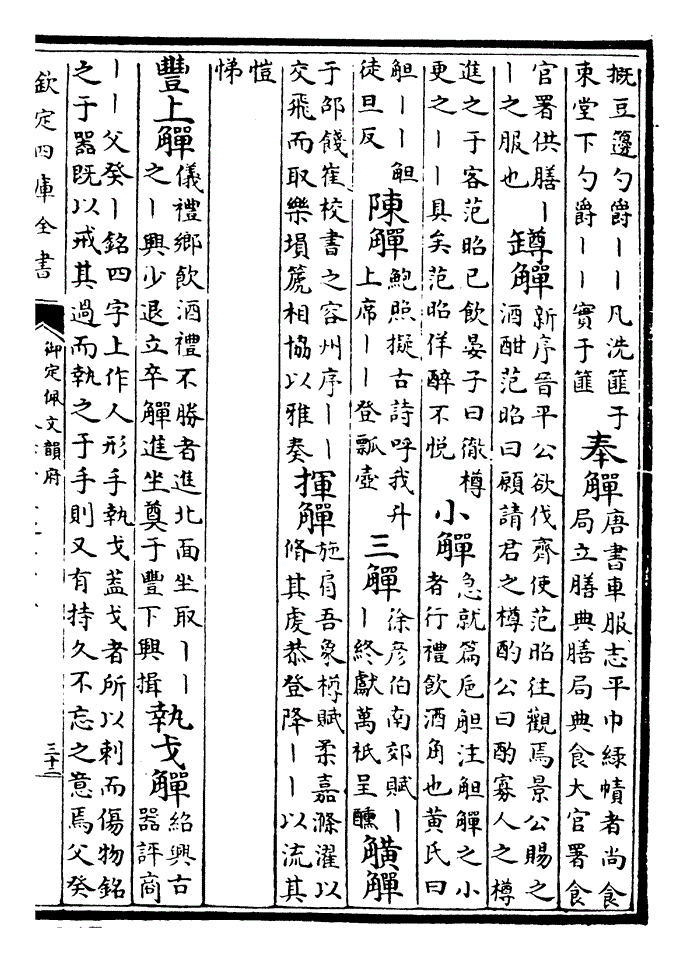 摡豆籩勺爵丨丨凡洗篚于
東堂下勺爵丨丨實于篚
奉觶
唐書車服志平巾綠幘者尚食
局立膳典膳局典食大官署食
官署供膳丨
丨之服也
罇觶
新序晉平公欲伐齊使范昭往觀焉景公賜之
酒酣范昭曰願請君之樽酌公曰酌寡人之樽
進之于客范昭已飲晏子曰徹樽
更之丨丨具矣范昭佯醉不悦
小觶
急就篇巵觛注觛觶之小
者行禮飲酒角也黄氏曰
觛丨丨觛
徒旦反
陳觶
鮑照擬古詩呼我升
上席丨丨登瓢壺
三觶
徐彦伯南郊賦丨
丨終獻萬祇呈醺
觵觶
于邵餞崔校書之容州序丨丨
交飛而取樂塤篪相協以雅奏
揮觶
施肩吾象樽賦柔嘉滌濯以
脩其虔恭登降丨丨以流其
愷
悌
豐上觶
儀禮鄉飲酒禮不勝者進北面坐取丨丨
之丨興少退立卒觶進坐奠于豐下興揖
執戈觶
紹興古
器評商
丨丨父癸丨銘四字上作人形手執戈蓋戈者所以刺而傷物銘
之于器既以戒其過而執之于手則又有持久不忘之意焉父癸
欽定四庫全書
御定佩文韻府
三十二